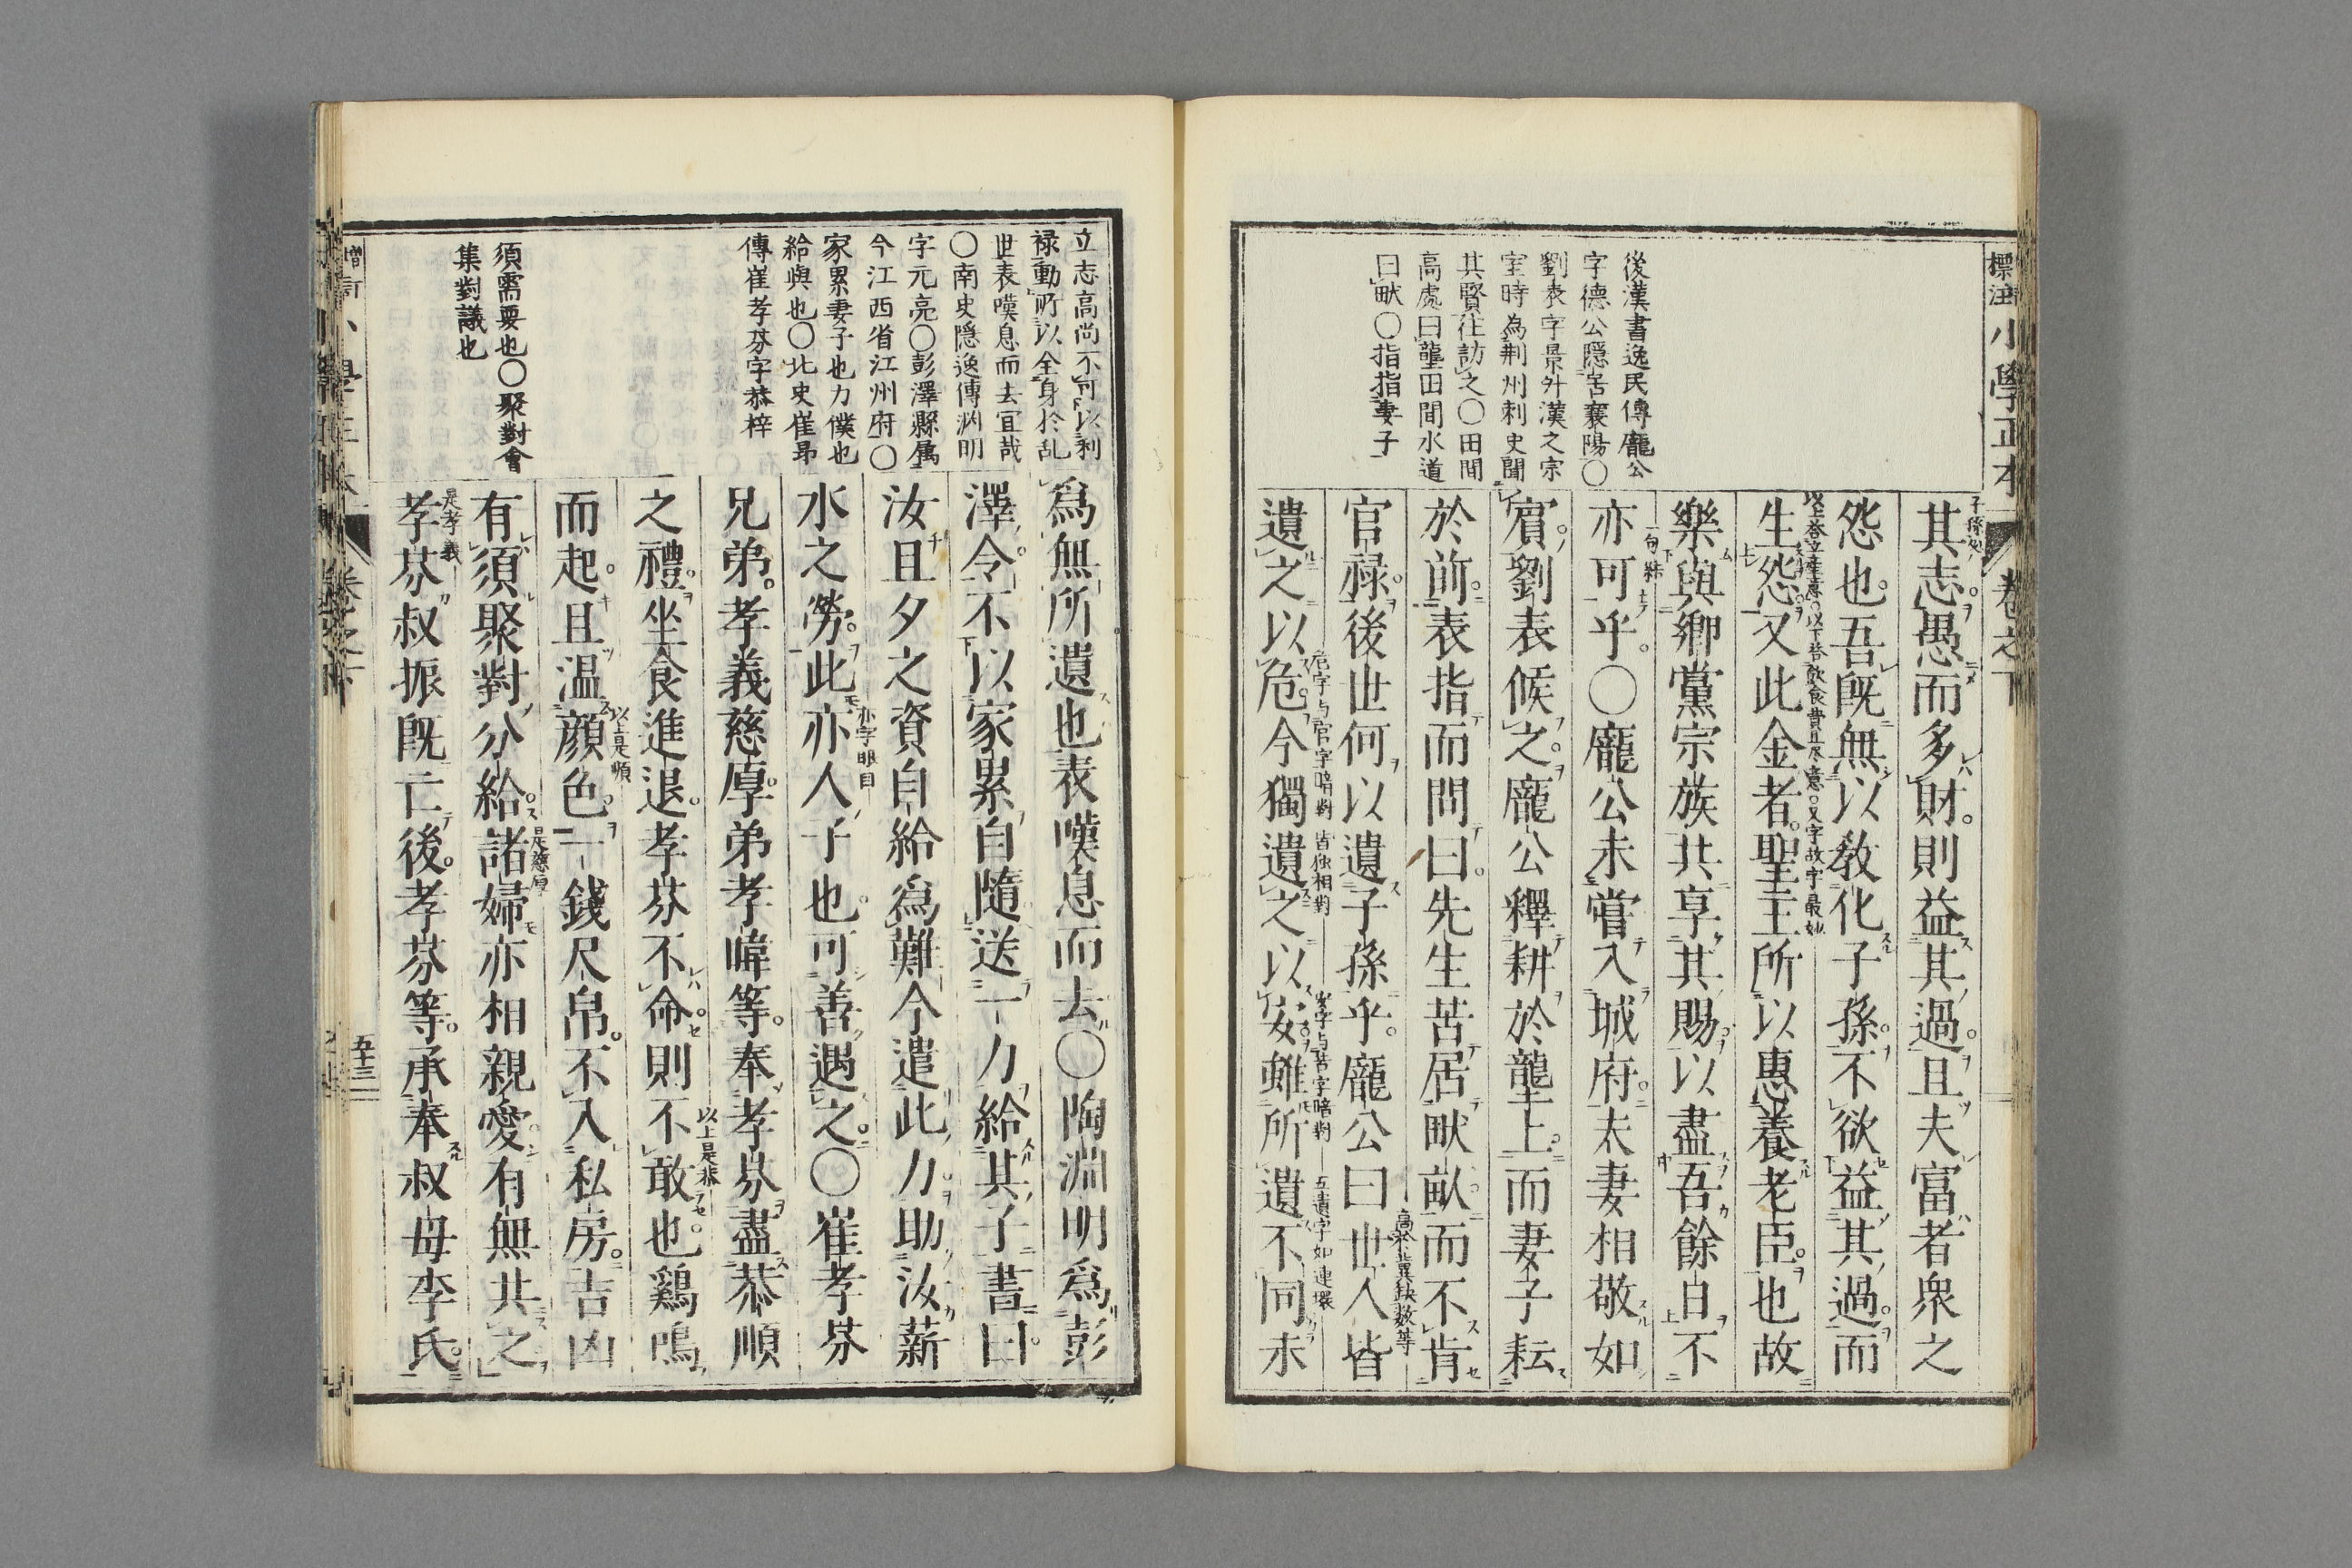 標注
小學正本
卷之下
後漢書逸民傳龐公
字德公隱居襄陽〇
劉表字景升漢之宗
室時為荆州刺史聞
其賢往訪之〇田間
高處曰壟田間水道
曰畎〇指指妻子
其志愚而多財則益其過且夫富者衆之
怨也吾既無以教化子孫不欲益其過而
生怨又此金者聖主所以惠養老臣也故
樂與鄉黨宗族共享其賜以盡吾餘日不
亦可乎〇龐公未嘗入城府夫妻相敬如
賓劉表候之龐公釋耕於壟上而妻子耘
於前表指而問曰先生苦居畎畝而不肯
官祿後世何以遺子孫乎龐公曰世人皆
遺之以危今獨遺之以安雖所遺不同未
以上答立産意〇以下答飲食費且尽意〇又字故字最妙
危字与官字暗對
皆獨相對
安字与苦字暗對
五遺字如連環
立志高尚不可以利
禄動所以全身於乱
世表嘆息而去宜哉
〇南史隱逸傳渊明
字元亮〇彭澤縣属
今江西省江州府〇
家累妻子也力僕也
給與也〇北史崔昂
傳崔孝芬字恭梓
須需要也〇聚對會
集對議也
爲無所遺也表嘆息而去〇陶淵明爲彭
澤令不以家累自隨送一力給其子書曰
汝旦夕之資自給爲難今遣此力助汝薪
水之勞此亦人子也可善遇之〇崔孝芬
兄弟孝義慈厚弟孝暐等奉孝芬盡恭順
之禮坐食進退孝芬不命則不敢也鷄鳴
而起且温顔色一錢尺帛不入私房吉凶
有須聚對分給諸婦亦相親愛有無共之
孝芬叔振既亡後孝芬等承奉叔母李氏
亦字眼目
以上是恭
以上是順
是慈厚
是孝義
增訂
小學正本
卷之下
五十三